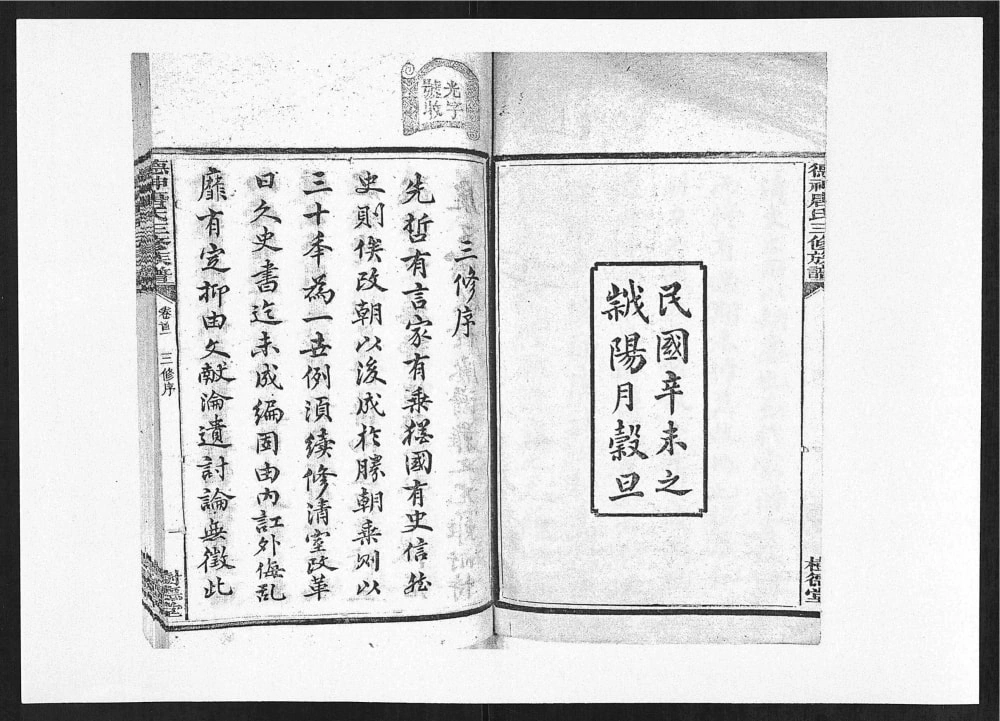 德神唐氏三修族譜
樹德堂
民國辛未之
歲陽月穀旦
光字
號收
三修序
先哲有言家有乘猶國有史信然
史則俟改朝以後成於勝朝乘則以
三十年為一世例須續修清室改革
日久史書迄未成編固由內訌外侮亂
靡有定抑由文献淪遺討論無徵此
德神唐氏三修族譜
卷首
三修序
一
樹德堂